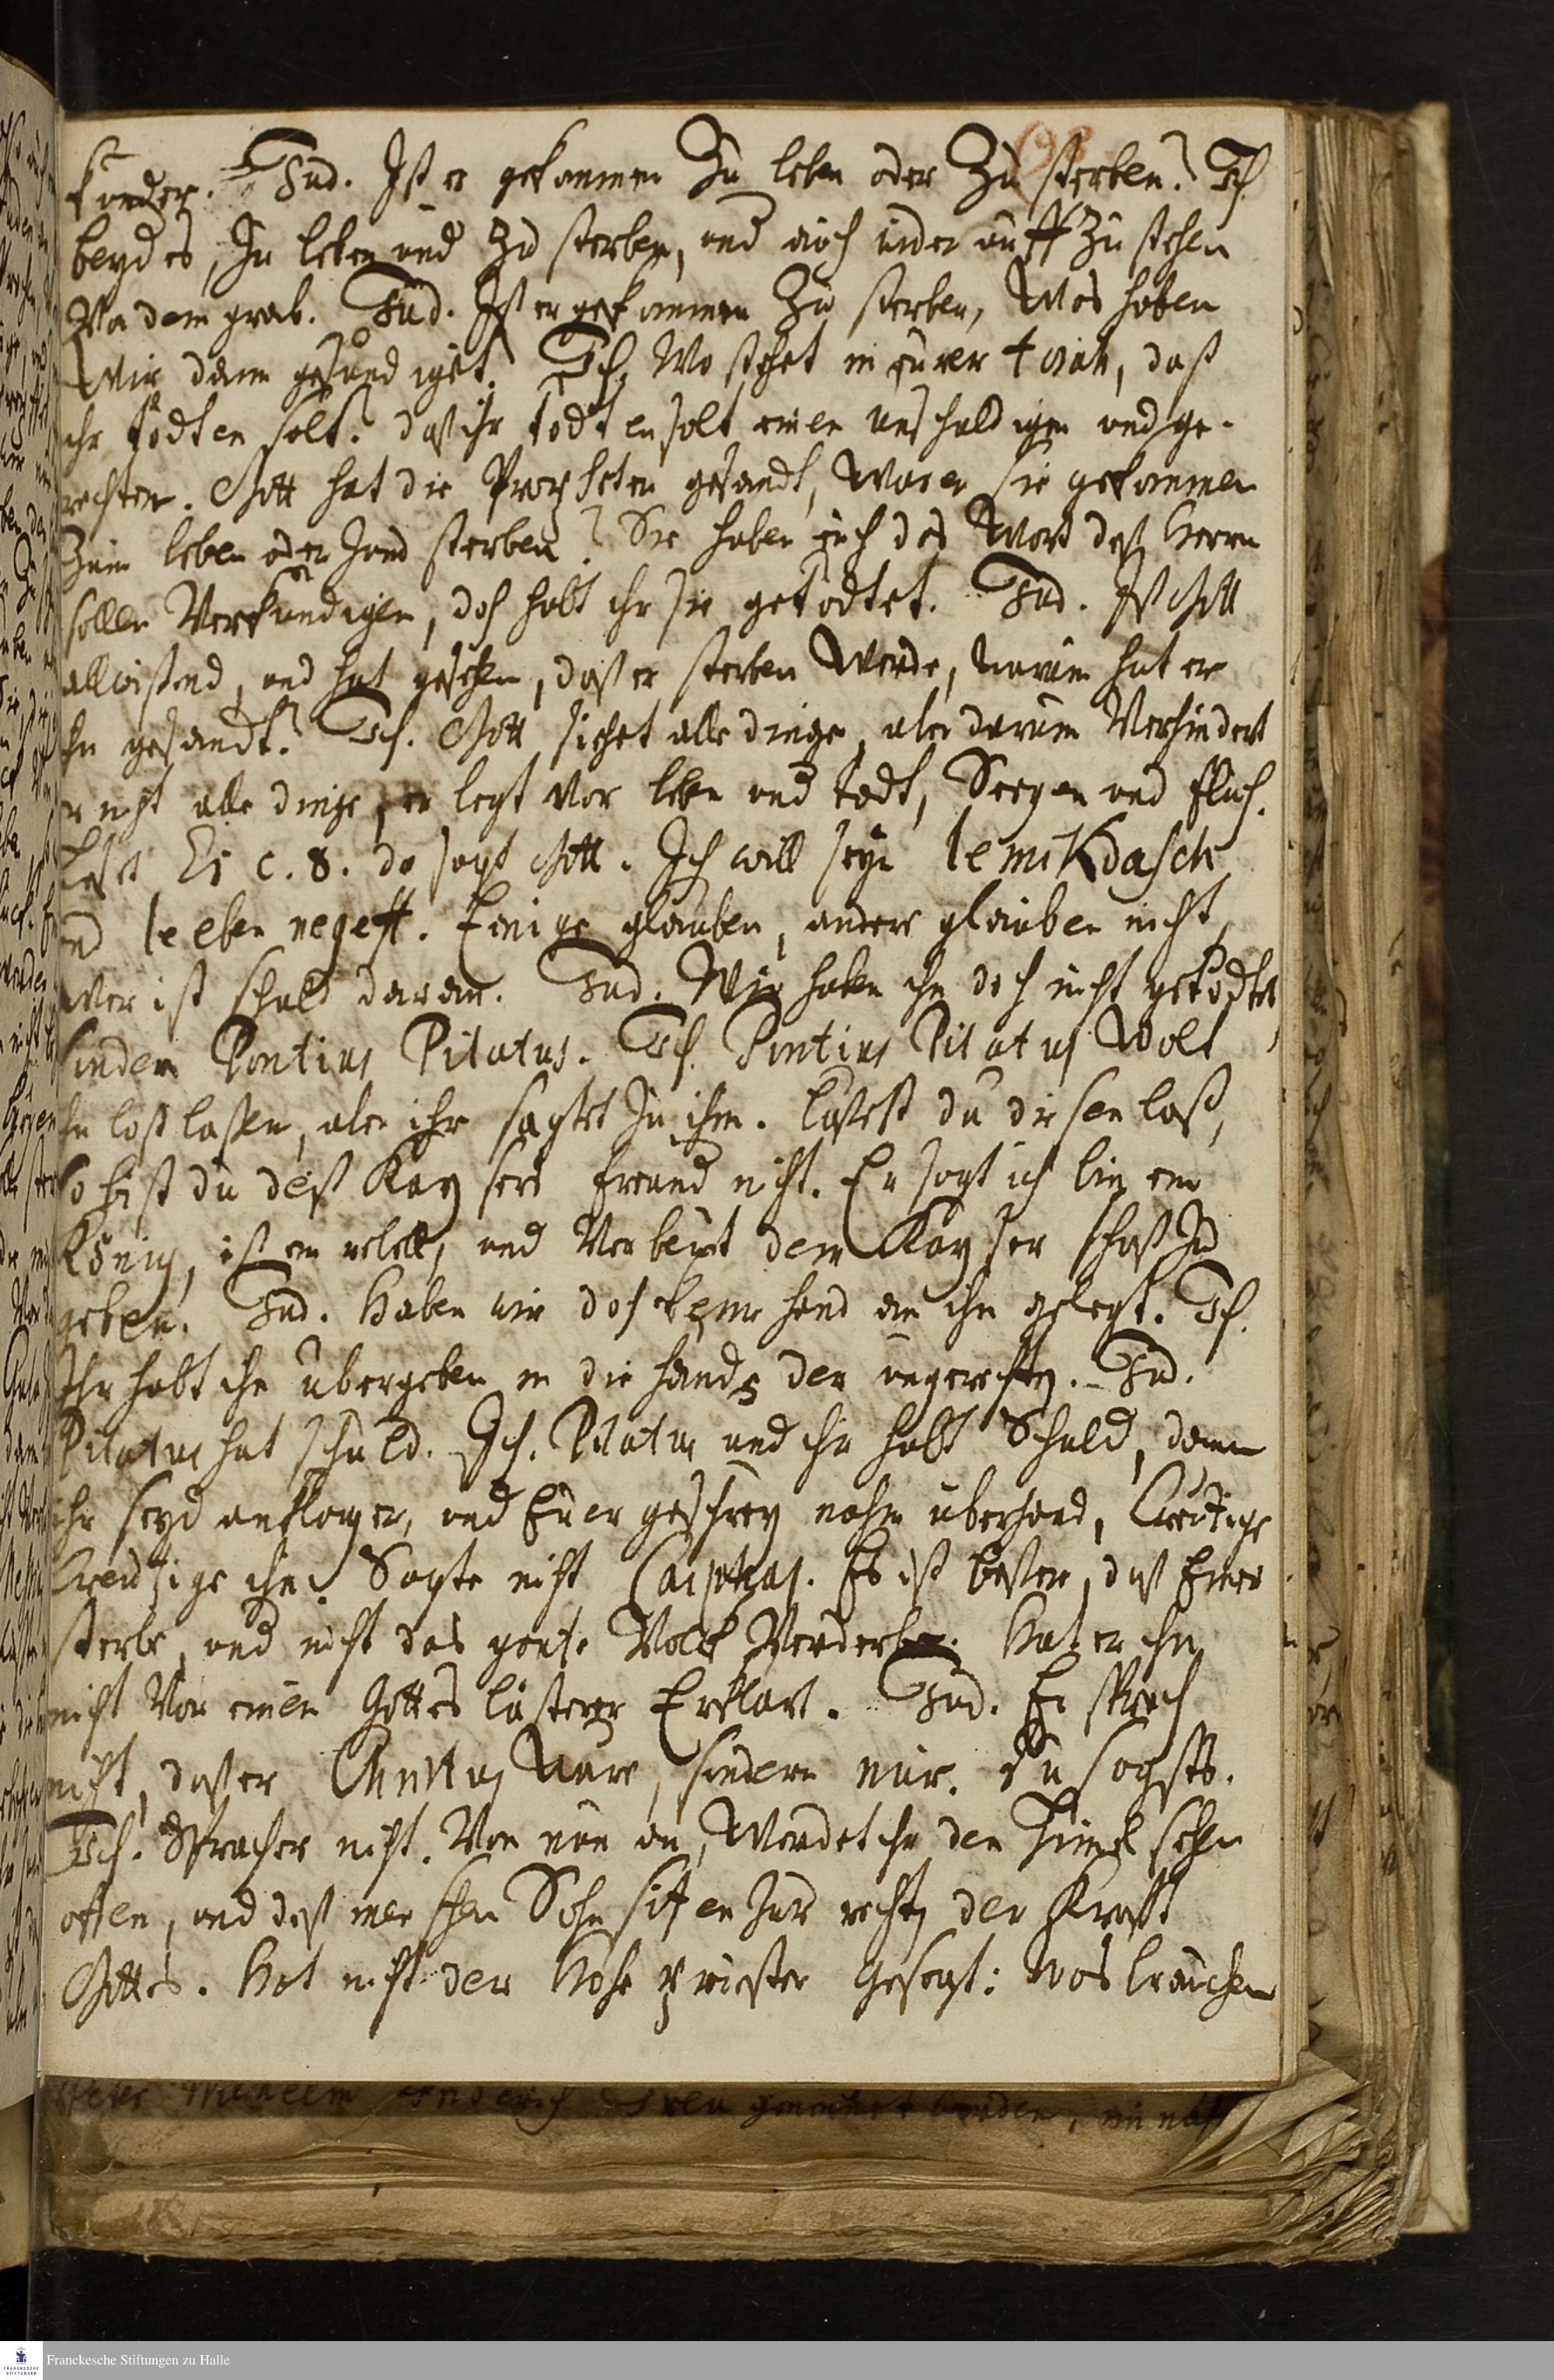 sonder. Jud. Ist er gekommen Zu leben oder Zu sterben? Ich.
beydes, Zu leben und Zu sterben, und auch wider auff Zu stehen
Von dem grab. Jud. Ist er gekommen Zu sterben, Was haben
Wir dann gesündiget? Ich. Wo stehet in eurer torah, daß
ihr tödten solt? daß ihr tödten solt einen unschuldigen und ge-
rechten. Gott hat die Propheten gesandt, Waren sie gekommen
Zum leben oder Zum sterben? Sie haben euch das Wort deß Herrn
sollen Verkündigen, doch habt ihr sie getödtet. Jud. Ist Gott
allwißend, und hat gesehen, daß er sterben Werde, warum hat er
ihn gesandt? Ich. Gott siehet alle dinge, aber darum Verhindert
er nicht alle dinge, er legt vor leben und todt, Seegen und fluch.
Leset Es c. 8. da sagt Gott. Ich will seyn lemikdasch
und leeben negeff. Einige glauben, andere glauben nicht,
wer ist schuld daran. Jud. Wir haben ihn doch nicht getödtet
sindern Pontius Pilatus. Ich. Pontius Pilatus Wolt
ihn loß laßen, aber ihr sagtet Zu ihm. Läßest du diesen loß,
so bist du deß Kaysers freund nicht. Er sagt ich bin ein
König, ist ein rebell, und Verbeut dem Kayser schoß Zu
geben. Jud. Haben wir doch keine hand an ihn gelegt. Ich.
Ihr habt ihn übergeben in die hände der ungerechten. Jud.
Pilatus hat schuld. Ich. Pilatus und ihr habt Schuld, denn
ihr seyd ankläger, und Euer geschrey nahm überhand, Creutzige
Creutzige ihn! Sagte nicht Caiphas. Es ist beßer, daß Einer
sterbe, und nicht das gantze Volck Verderbe. Hat er ihn
nicht Vor einen Gottes lästerer Erklärt. Jud. Er sprach
nicht, daß er Christus Wäre, sindern nur. du sagsts.
Ich. Sprach er nicht. Von nun an, Werdet ihr den himel sehen
offen, und deß menschen Sohn sitzen Zur rechten der Krafft
Gottes. Hat nicht der Hohe Priester Gesagt: Was brauchen
Franckesche Stiftungen zu Halle